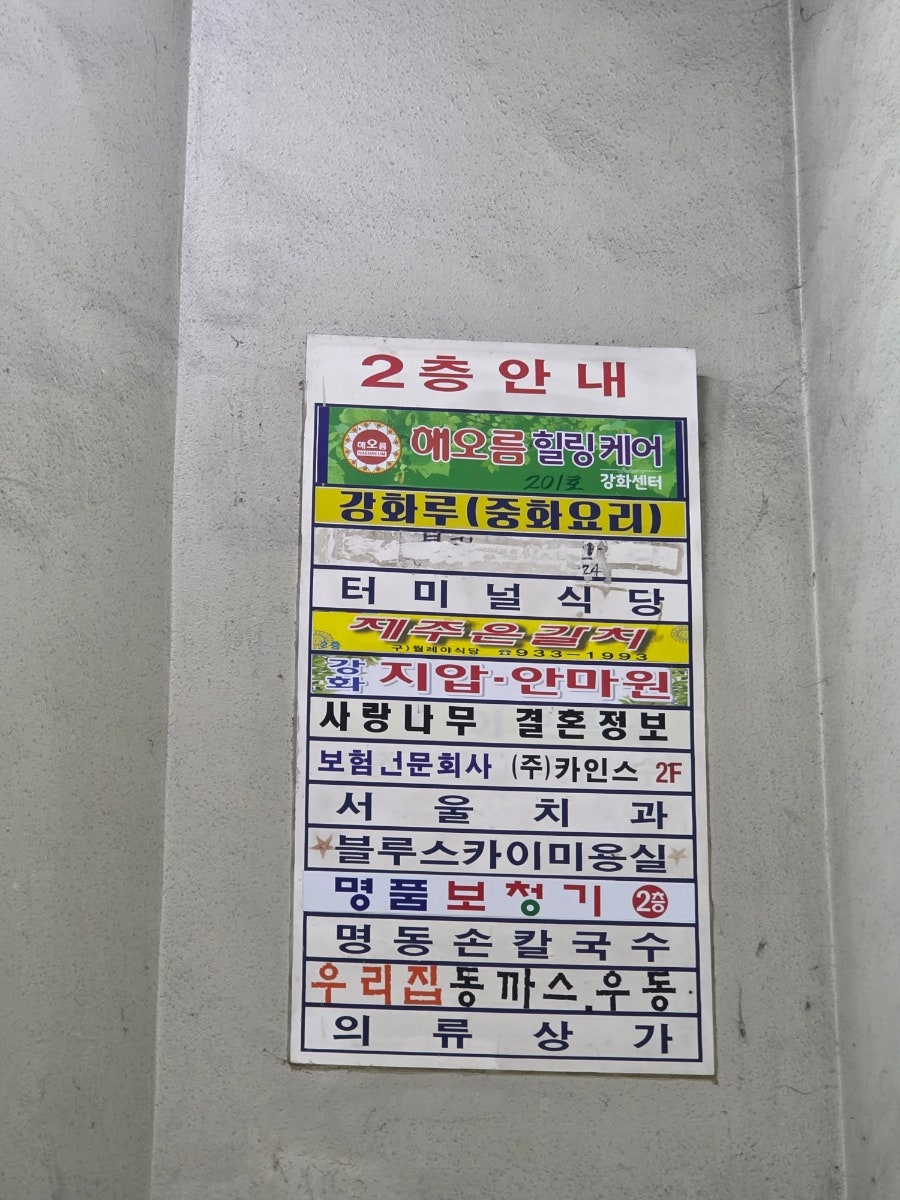 2층안내
해오름 힐링케어
해오름
HAEOREUM
201호 강화센터
강화루(중화요리)
24
터미널식당
제주은갈치
2층 구)월레야식당 ☎933-1993
강화 지압·안마원
사랑나무 결혼정보
보험전문회사 (주)카인스 2F
서울치과
블루스카이미용실
명품보청기 2층
명동손칼국수
우리집동까스.우동
의류상가